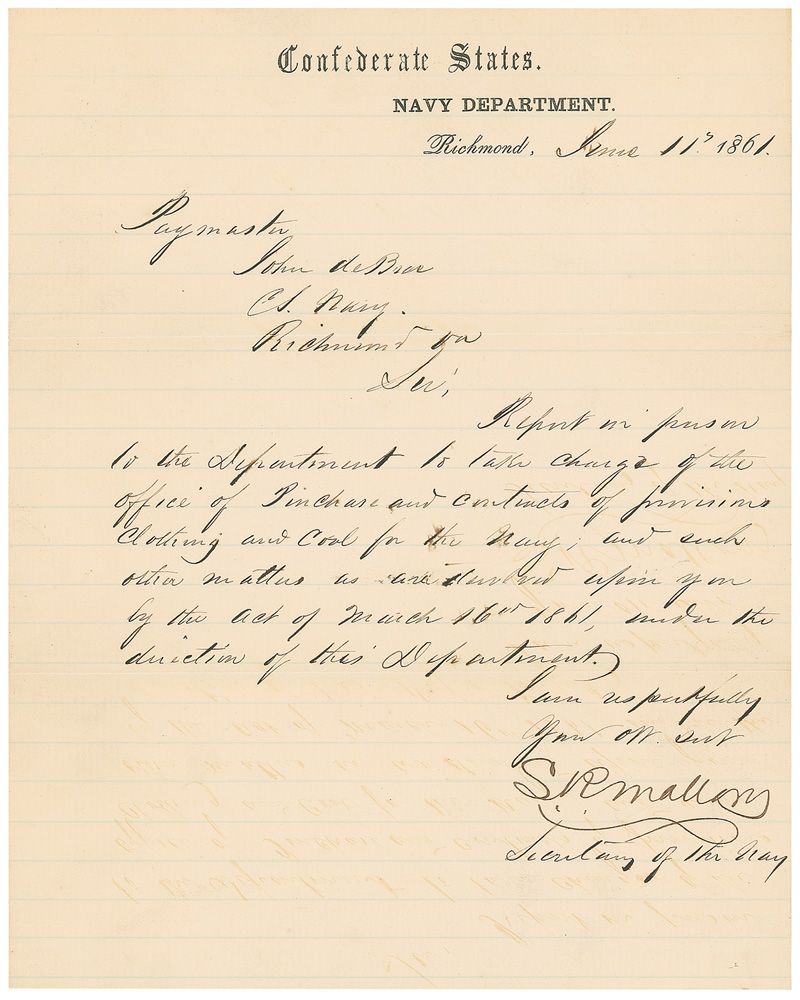 Confederate States.
NAVY DEPARTMENT.
Richmond, June 11, 1861.
Paymaster
John deBree
CS. Navy.
Richmond Va
Sir,
Report in person
to the Department to take charge of the
office of Purchase and contracts of provisions
Clothing and Coal for the Navy; and such
other matters as are devolved upon you
by the act of March 16th 1861, under the
direction of this Department.
I am respectfully
Your Obt. Servt
S R Mallory
Secretary of the Navy